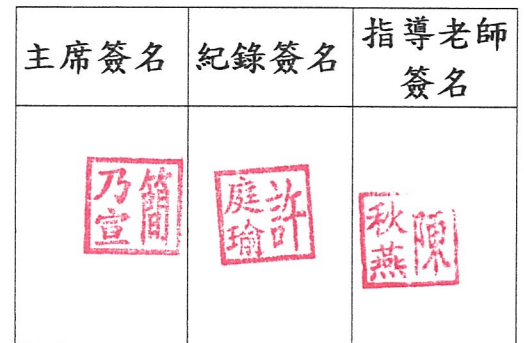 主席簽名
紀錄簽名
指導老師
簽名
簡乃宣
許庭瑜
陳秋燕